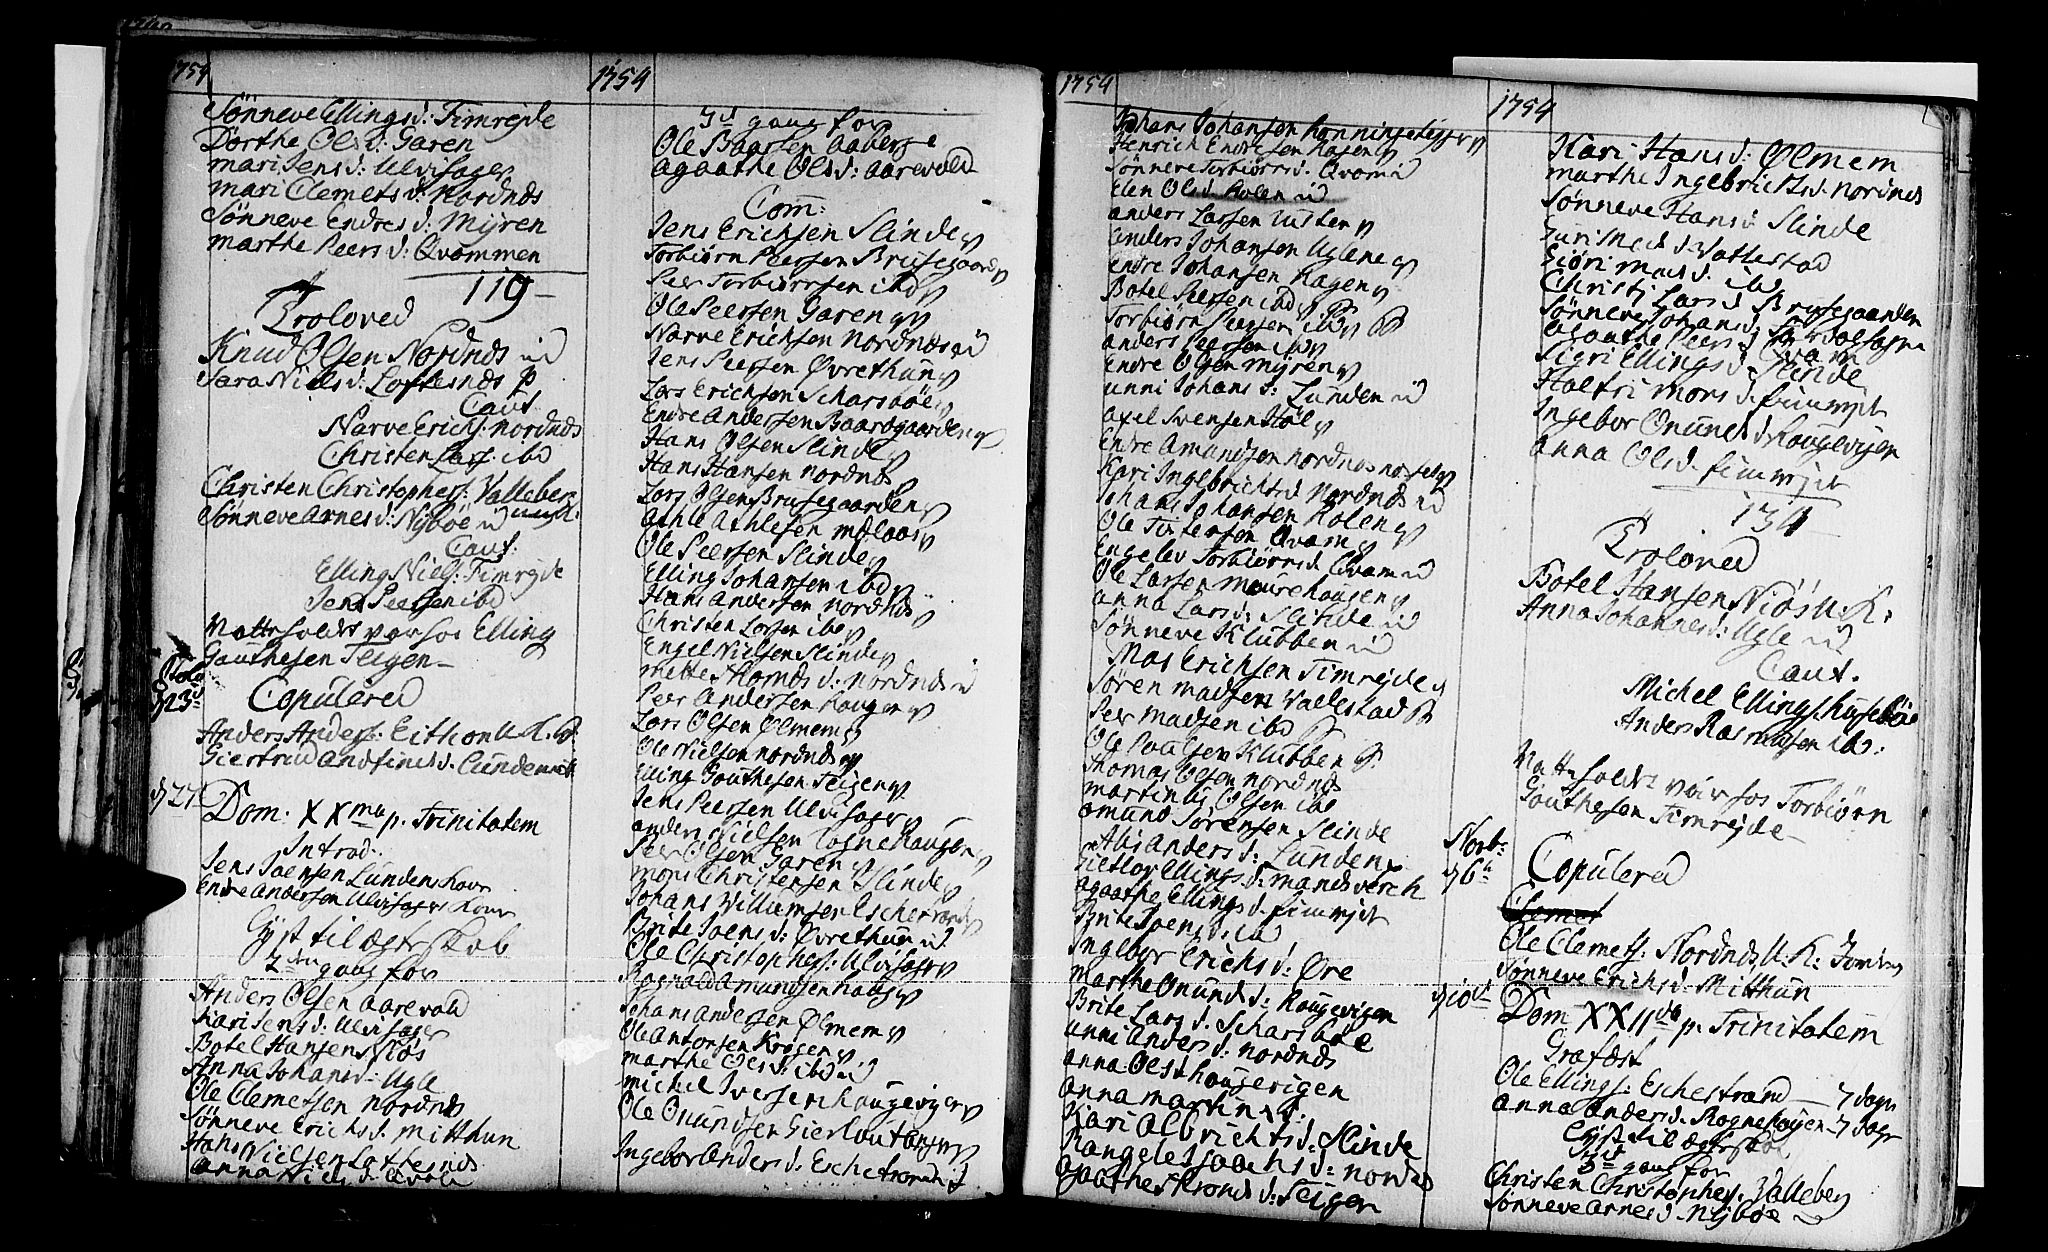 1754
Sønneve Ellings d: Timrejde
Dorthe Ols d: Garen
mari Jens d: Ulvisager
mari Clemets d: Nordnds
Sønneve Endres d: Myren
marthe Peers d: Qvammen
119
Troloved
Knud Olsen Nordnds
Sara Niels d: Loftesnds
Caut
Narve Erichs: nordnds
Christen Lars: ibd
Christen Christophers: Valleberg
Sønneve Arnes d: Nybøe
Caut:
Elling Niels: Timrejde
Jens Peersen ibd
holdt var hos Elling
Gouthesen Teigen
d 23
Copulered
Anders Anders: Eithon U. K.
Giertrud Andfind d. Lunden
d 27
Dom. XXma p. Trinitatem
Introd.
Jens Joensen Lundens Kone
Endre Andersen Ulvisagers Kone
Lyst til Ægteskab
2den gang for
Anders Olsen Aarevold
Kari Jens d: Ulvisager
Botel Hansen Niøs
Anna Johans d: Ugle
Ole Clemetsen Nordnds
Sønneve Erichs d: Mitthun
Hans Nielsen Loftesnds
Anna Niels d:
1754
3d gang for
Ole Baarsen Aaberge
Agaathe Ols d: Aarevold
Com:
Jens Erichsen Slinde
Torbiørn Peersen Brusegaard
Peer Torbiørnsen ibd
Ole Peersen Garen
Narve Erichsen Nordnds
Jens Peersen Øvrethun
Lars Erichsen Scharsbøe
Endre Andersen Baardgaarden
Hans Olsen Slinde
Hans Hansen nordnds
Lars Olsen Brusegaarden
Athle Athlesen
Ole Peersen Slinde
Elling Johansen ibd
Hans Andersen nordnds
Christen Larsen ibd
Engel Nielsen Slinde
Mette Thomds d: nordnds
Peer Andersen Haugen
Lars Olsen Ølmem
Ole Nielsen nordnds
Elling Gouthesen Teigen
Jens Peersen Ulvisager
anders Nielsen Rognehaugen
Peer Olsen Garen
mons Christensen Slinde
Johans Willumsen Eschestrand
Brite Joens d: Øvrethun
Ole Christophers: Ulvisager
Rognald Amundsen Haug
Johans Andersen Ølmem
Ole Antonsen Krogen
marthe Ols d: ibd
michel Iversen Haugevigen
Ole Onundsen Gierløutangen
Ingebor Anders d: Eschestrand
1754
Johans Johansen Rønninseteigen
Henrich Endresen Hagen
Sønneve Torbiørns d: Qvam
Elen Ols d: Holen
anders Larsen
anders Johansen Uglene
Endre Johansen Hagen
Botel Peersen ibd
Torbiørn Peersen ibd
anders Peersen ibd
Endre Olsen Myren
unni Johans d: Lunden
axel Svensen Høl
Endre Amundsen nordnds
Kari Ingebrichts d: Nordnds
Johans Johansen Holen
Ole Torstensen Qvam
Engelev Torbiørns d: Qvam
Ole Larsen Mourehougen
anna Lars d. Slinde
Sønneve Klubben
Mas Erichsen Timrejde
Søren Madsen Vallestad
Peer Madsen ibd
Ole Poulsen Klubben
Thomas Olsen nordnds
martinus Olsen ibd
omund Sørensen Slinde
Alis Anders d: Lunden
Ellings d:
agaathe Ellings d. Fimrejt
Brite Joens d: ibd
Ingebor Erichs d: Øre
Marthe Onunds d: Haugevigen
Brite Lars d. Scharsbøe
unni Anders d: nordnds
anna Ols Haugevigen
anna martins d:
Kari Olbrichts d: Slinde
Rangele Isaachs d: nordnds
agaathe Tronds d: Teigen
1754
Kari Hans d: Ølmem
marthe Ingebrichts d. nordnds
Sønneve Hans d: Slinde
Juri Neds d. Vallestad
Giøri Mads d. ibd
Christj Lars d. Brusegaarden
Sønneve Johans d:
agaathe Peers d. Qvam
Sigri Ellings d: Slinde
Haltri Mons d. Fimrejt
Ingebor Onunds d. Haugevigen
anna Ols d. Fimrejt
134
Troloved
Botel Hansen Niøs U. K.
Anna Johannes d: Ugle
Caut.
Michel Ellings: Husebøe
Anders Rasmusen ibd:
holdt var hos Torbiørn
Gouthesen Timrejde
Novb:
d 6th
Copulered
Ole Clemets: Nordnds U. K:
Sønneve Erichs d: Mitthun
d 10d
Dom XXIIda p. Trinitatem
Græfæst
Ole Ellings: Eschestrand — 7 dage
Anna Anders d. Rognehougen — 7 dage
Lyst til Ægteskab
3d gang for
Christen Christophers: Valleberg
Sønneve Arnes d. Nybøe